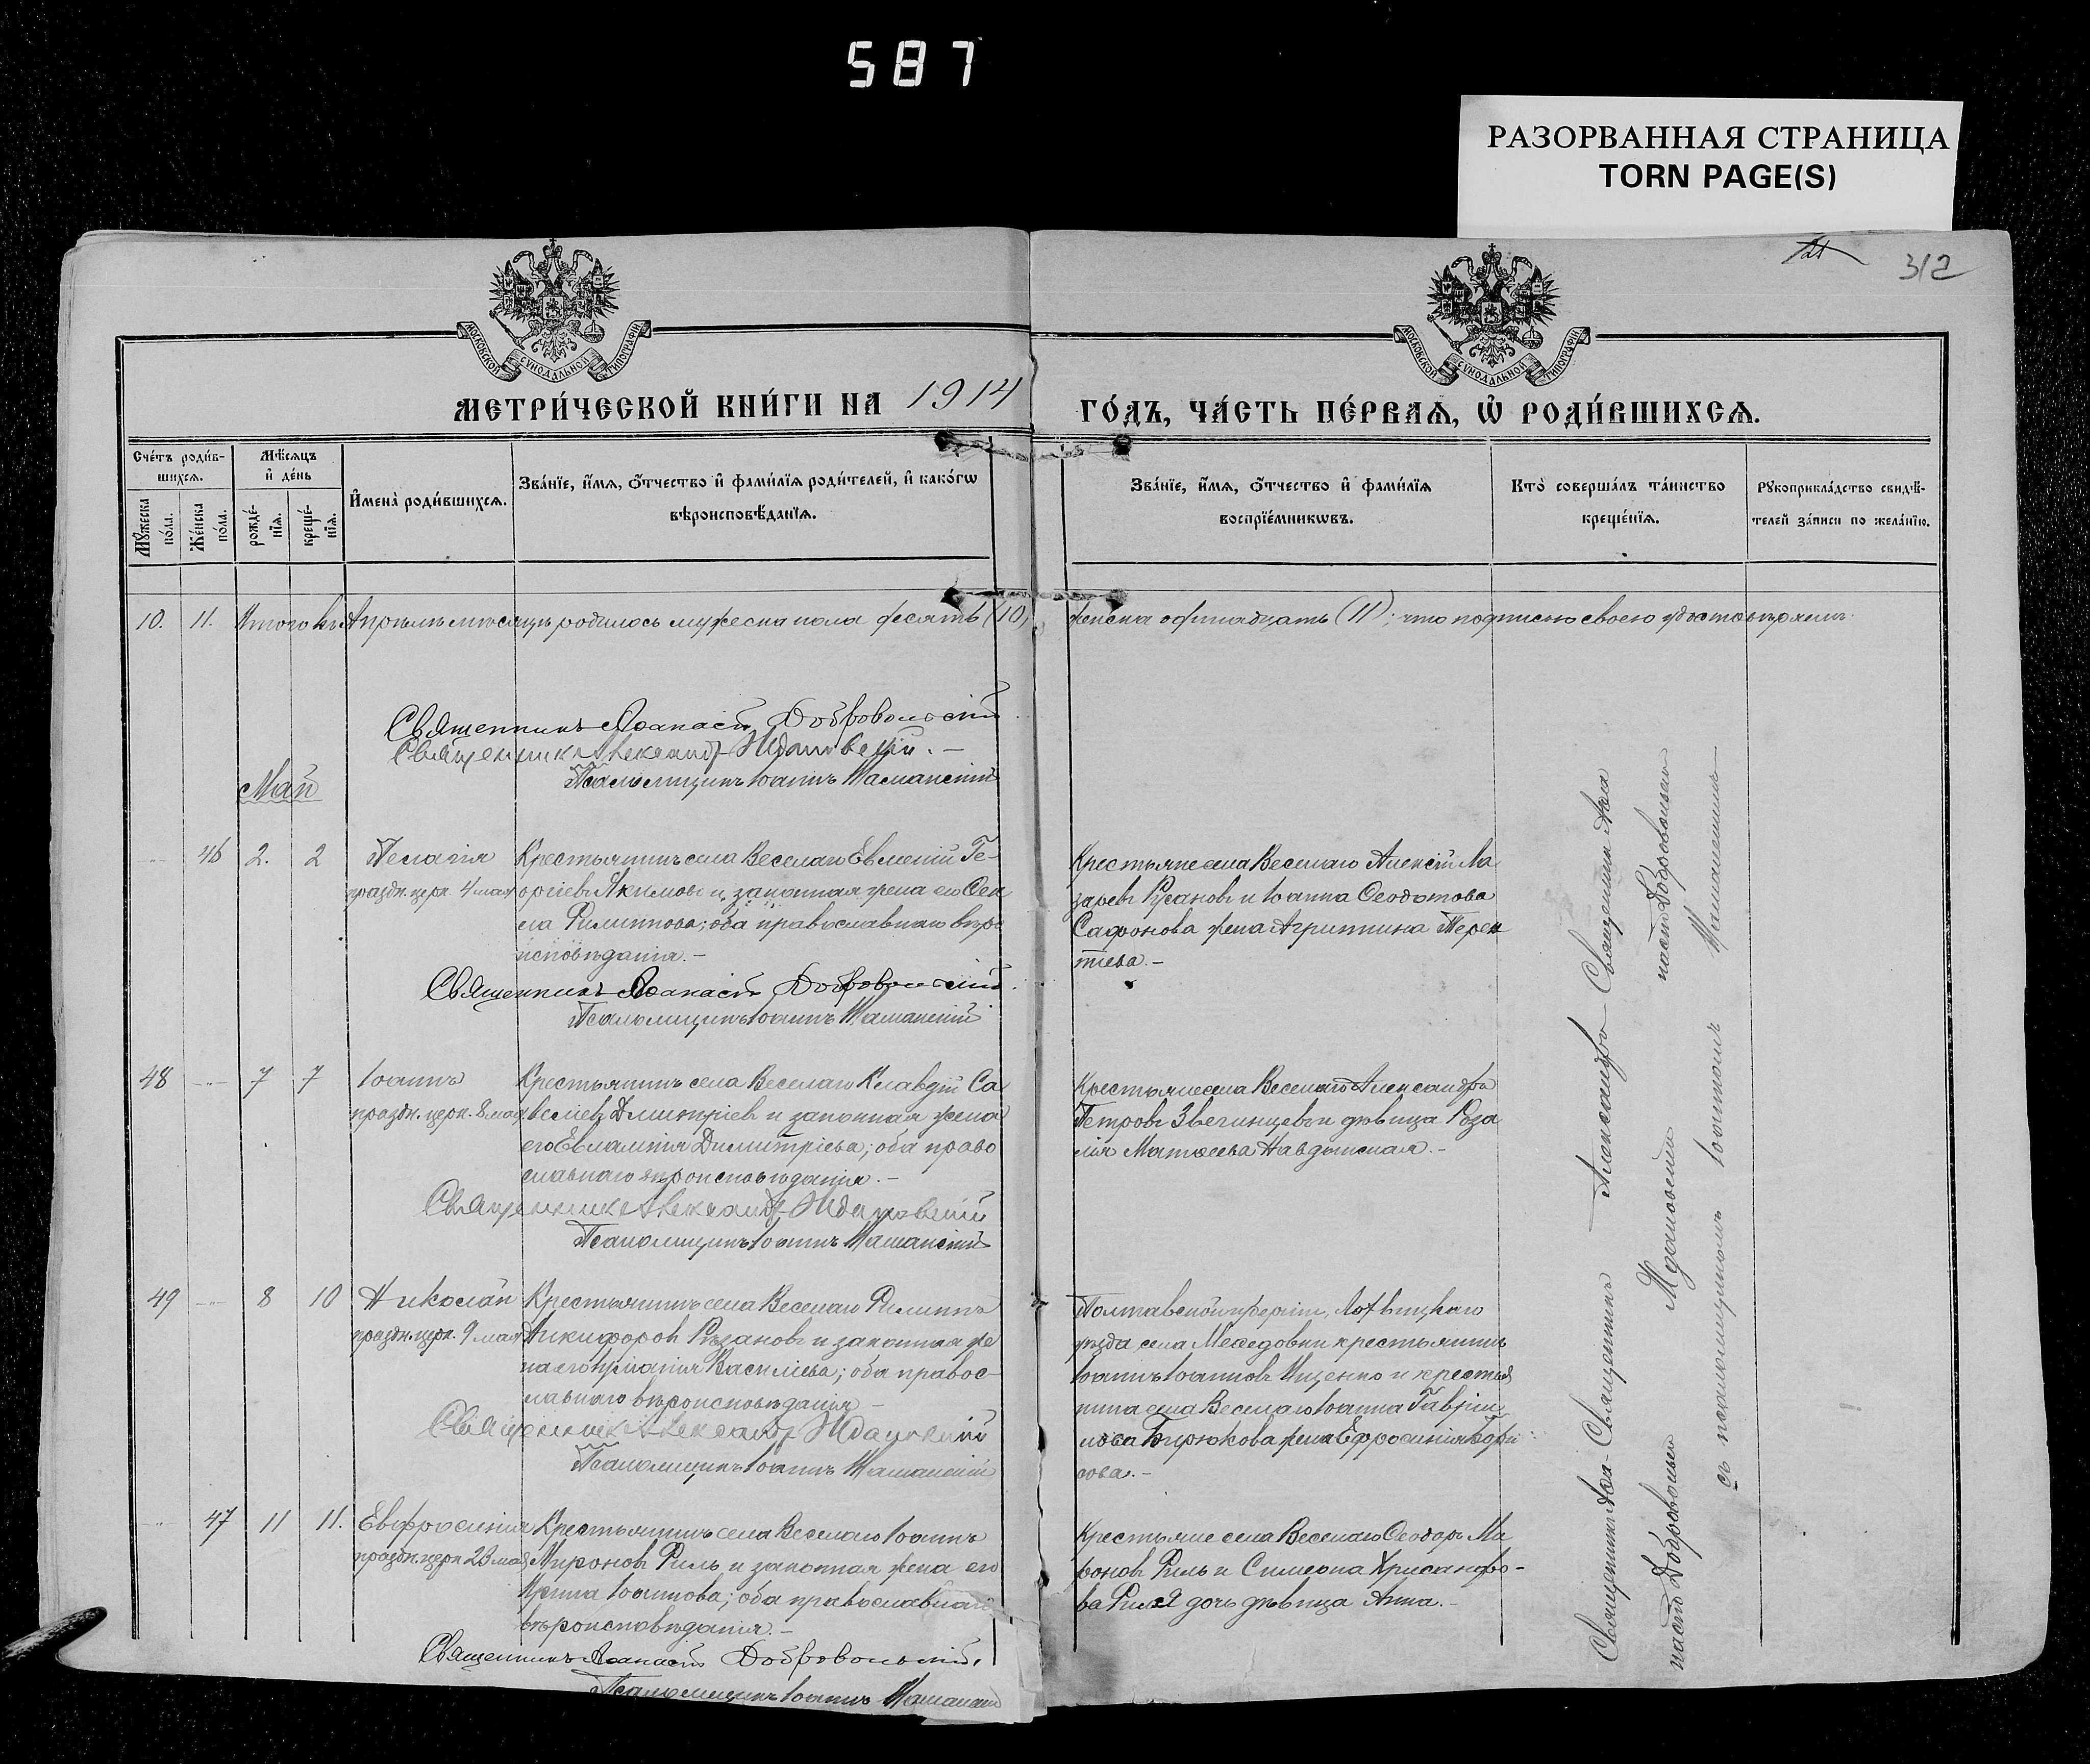 587
РАЗОРВАННАЯ СТРАНИЦА
TORN PAGE(S)
312
МОСКОВСКОЙ СѴНОДАЛЬНОЙ ТИПОГРАФІИ
МОСКОВСКОЙ СѴНОДАЛЬНОЙ ТИПОГРАФІИ
МЕТРИ́ЧЕСКОЙ КНИ́ГИ НА 1914 ГО́ДЪ, ЧА́СТЬ ПЕ́РВАѦ, Ѿ РОДИ́ВШИХСѦ.
Сче́тъ роди́в-
шихсѧ.
Мꙋ́жеска по́ла.
Же́нска по́ла.
Мѣ́сѧцъ
и҆ де́нь
рожде́-
нїѧ.
креще́-
нїѧ.
И҆мена̀ роди́вшихсѧ.
Зва́нїе, и҆́мѧ, ѻ҆́тчество и҆ фами́лїѧ роди́телей, и҆ како́гѡ
вѣроисповѣ́данїѧ.
Зва́нїе, и҆́мѧ, ѻ҆́тчество и҆ фами́лїѧ
воспрїе́мникѡвъ.
Кто̀ соверша́лъ та́инство
креще́нїѧ.
Рꙋкоприкла́дство свидѣ́-
телей за́писи по жела́нїю.
10. 11. Итого въ Апрѣлѣ мѣсяцѣ родилось мужеска пола десять (10), женска одинадцать (11); что подписью своею удостовѣряемъ
Священникъ Аѳанасій Добровольскій
Священникъ Александръ Ждановскій.
Псаломщикъ Іоаннъ Шаманскій
Май
46 2. 2 Пелагія
праздн. церк. 4 мая
Крестьянинъ села Веселаго Евменій Ге-
оргіевъ Якимовъ и законная жена его Ѳек
ла Филиппова; оба православнаго вѣро
исповѣданія.
Священникъ Аѳанасій Добровольскій.
Псаломщикъ Іоаннъ Шаманскій
Крестьяне села Веселаго Алексій Ла
заревъ Русановъ и Іоанна Ѳеодотова
Сафонова жена Агриппина Терен
тіева.
48 7 7 Іоаннъ
праздн. церк. 8 мая
Крестьянинъ села Веселаго Клавдій Са
веліевъ Дмитріевъ и законная жена
его Евлампія Димитріева; оба право
славнаго вѣроисповѣданія.
Священникъ Александръ Ждановскій
Псаломщикъ Іоаннъ Шаманскій
Крестьяне села Веселаго Александръ
Петровъ Звегинцевъ и дѣвица Роза
лія Матѳеева
49 8 10 Николай
праздн. церк. 9 мая
Крестьянинъ села Веселаго Филиппъ
Никифоровъ и законная же
на его Васильева; оба правос-
лавнаго вѣроисповѣданія
Священникъ Александръ Ждановскій
Псаломщикъ Іоаннъ Шаманскій
Полтавской губерніи, Лохвицкаго
уѣзда села крестьянинъ
Іоаннъ Іоанновъ Ищенко и крестья
нина села Веселаго Іоанна Гаврiи
лова Бирюкова жена Ефросинія Бори
сова.
47 11 11. Евфросинія
праздн. церк. 23 мая
Крестьянинъ села Веселаго Іоаннъ
Мироновъ Филь и законная жена его
Ирина Іоаннова; оба православнаго
вѣроисповѣданія.
Священникъ Аѳанасій Добровольскій.
Псаломщикъ Іоаннъ Шаманскій
Крестьяне села Веселаго Ѳеодоръ Ми
роновъ Филь и Симеона Хрисанфо-
ва Филя дочь дѣвица Анна.
Священникъ Аѳа-
насій Добровольскій
Священникъ Александръ
Ждановскій
Священникъ Аѳа
насій Добровольскій
съ псаломщикомъ Іоанномъ Шаманскимъ